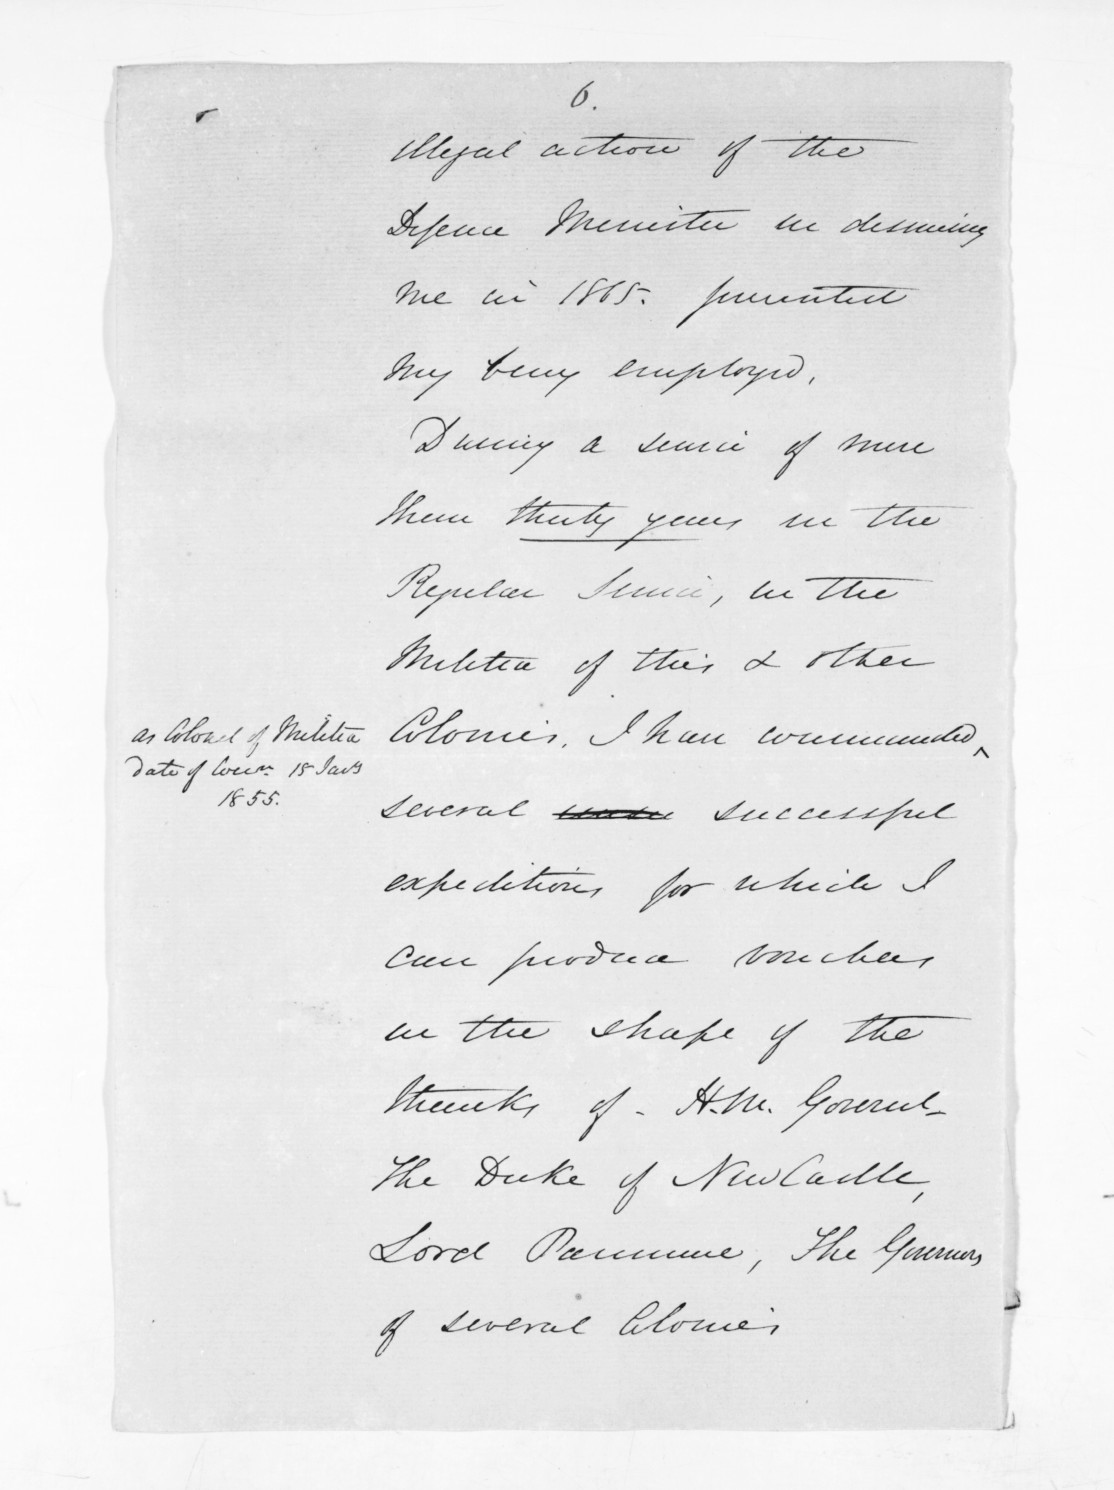 6.
illegal action of the
Defence Minister in dismissing
me in 1865. prevented
my being employed.
During a service of more
than thirty years in the
Regular Service, in the
Militia of this & other
Colonies. I have commanded,
as Colonel of Militia
date of Comn 15 Jany
1855.
several successful
expeditions for which I
can produce vouchers
in the shape of the
thanks of - H.M. Governt-
The Duke of NewCastle,
Lord Panmure, The Governors
of several Colonies